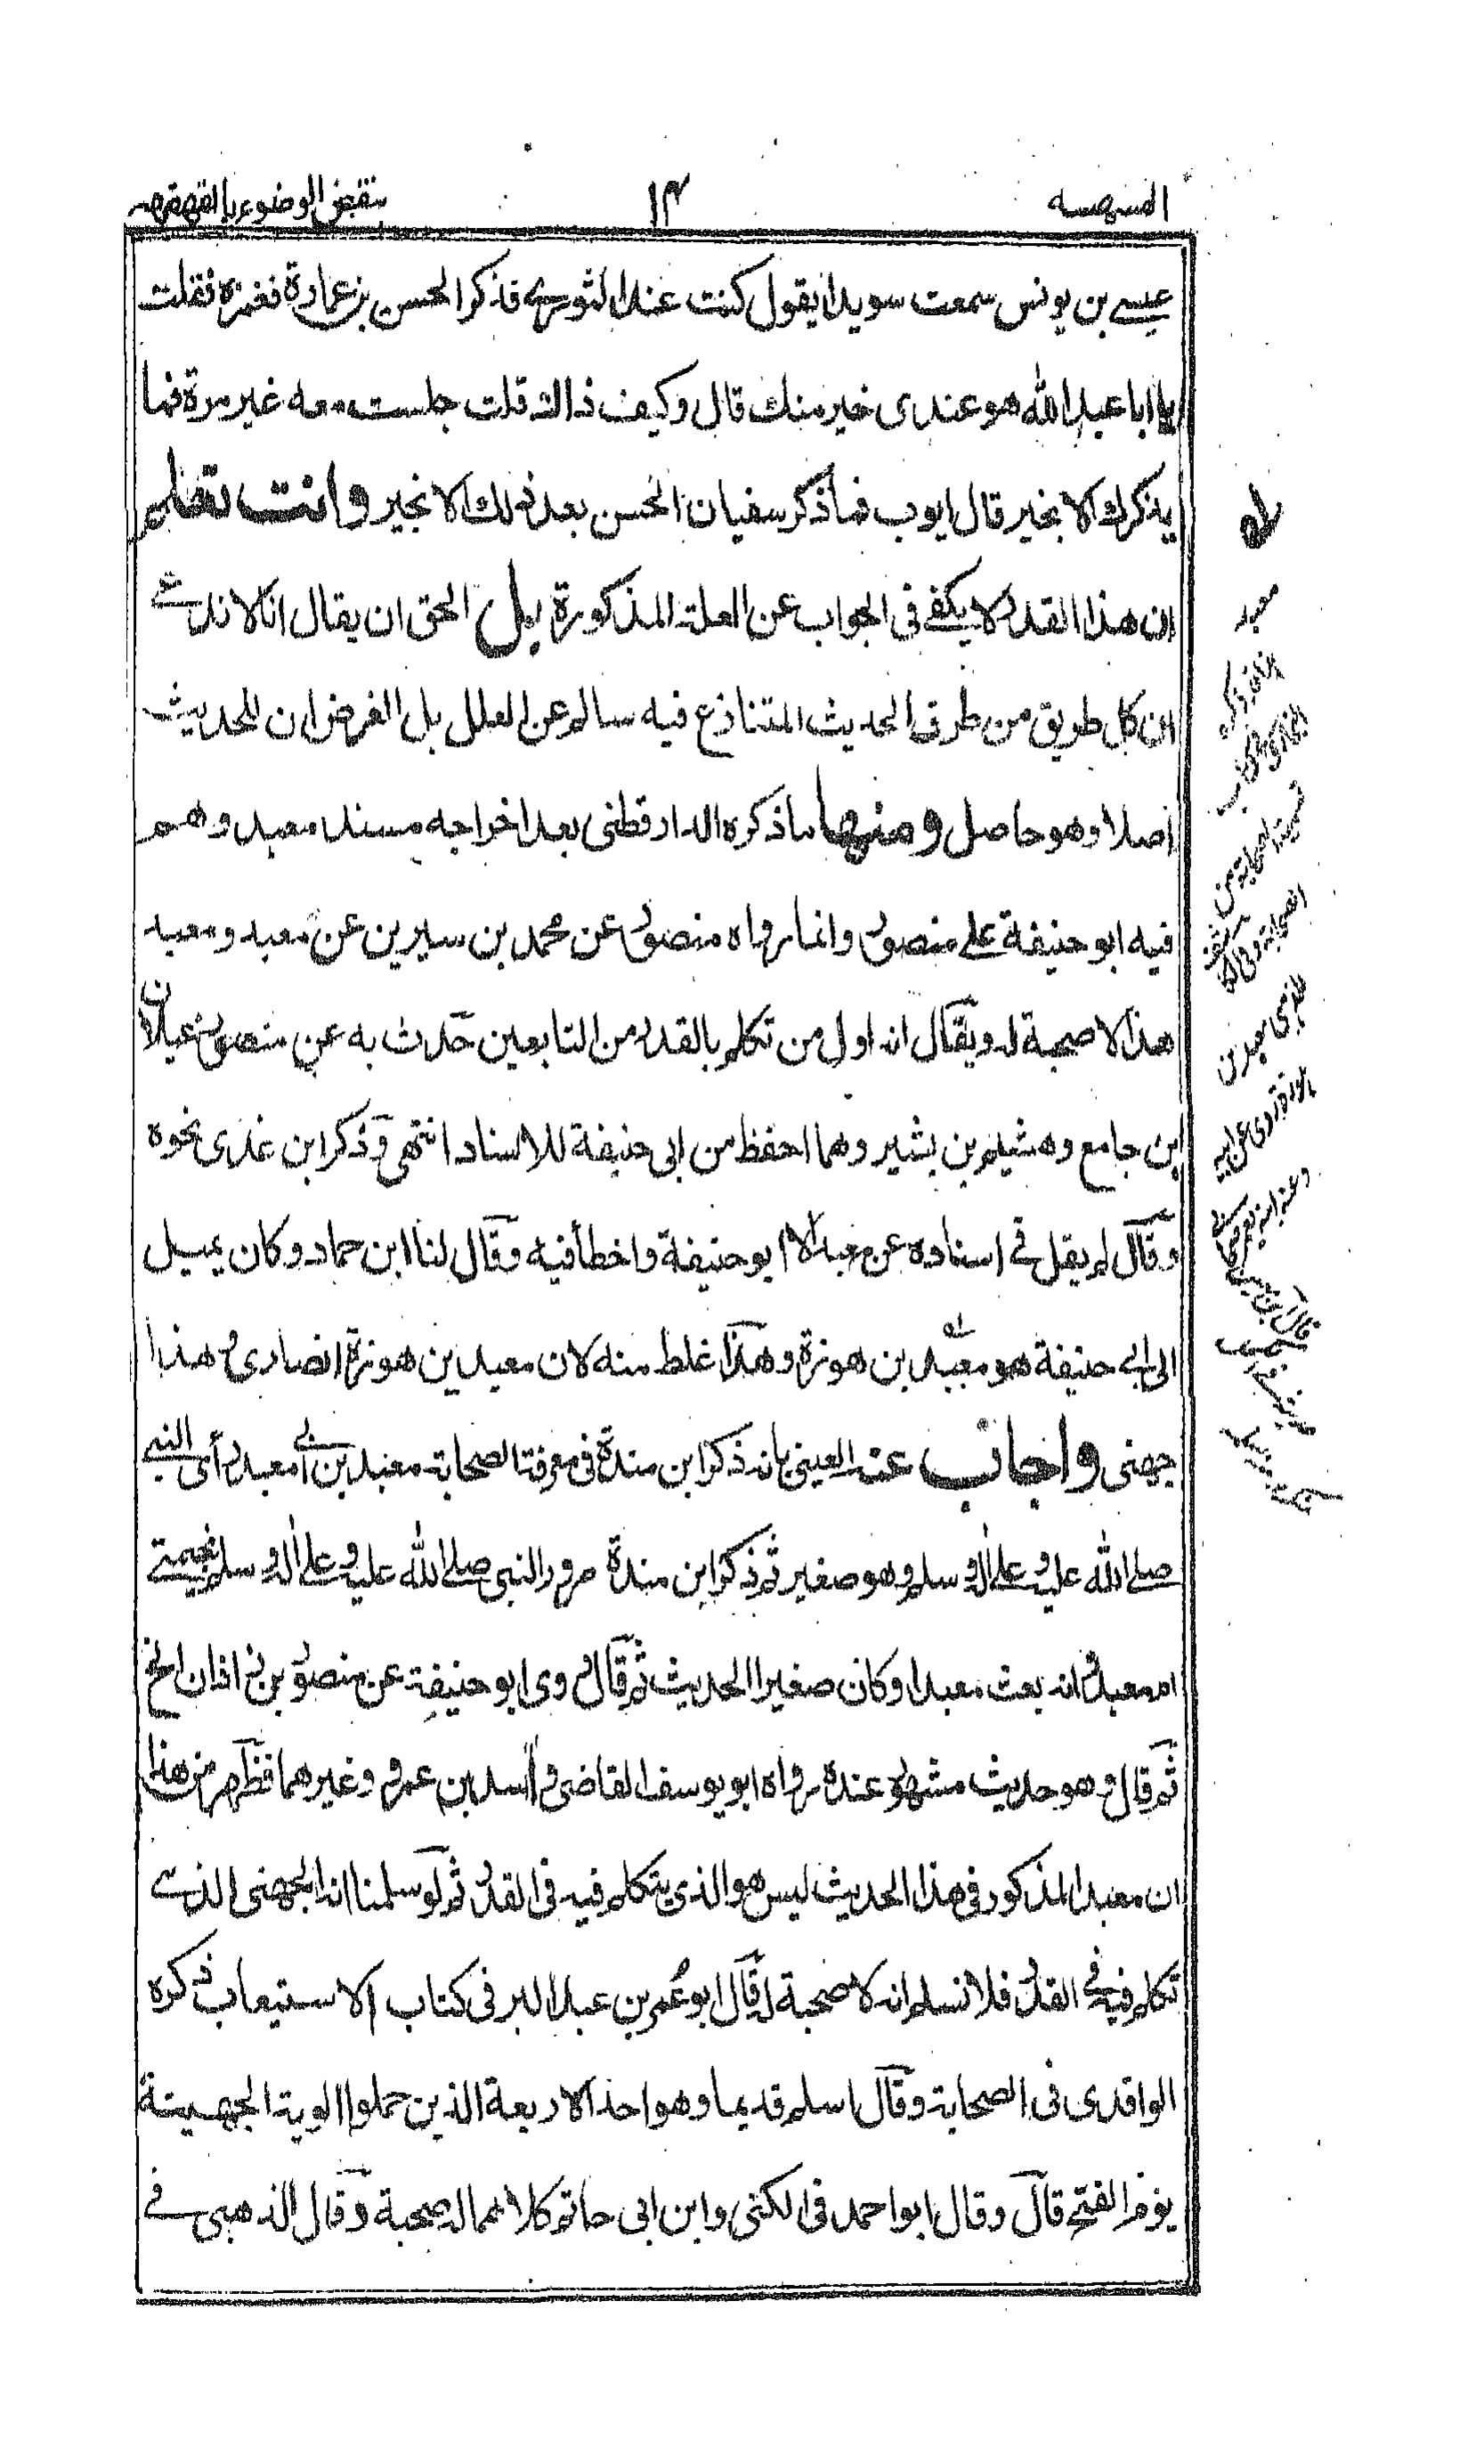 الهسهسه ١٤ بنقض الوضوء بالقهقهه
عيسے بن يونس سمعت سويدا يقول كنت عند الثورے فذكر الحسن بن عمارة فغمزه فقلت
يا ابا عبد الله هو عندى خير منك قال وكيف ذالك قلت جلست معه غير مرة فما
يذكرك الا بخير قال ايوب فما ذكر سفيان الحسن بعد ذلك الا بخير وانت تعلم
ان هذا القدر لا يكفے فى الجواب عن العلة المذكورة بل الحق ان يقال انا لا ندعے
ان كل طريق من طرق الحديث المتنازع فيه سالم عن العلل بل الغرض ان للحديث
اصلا وهو حاصل ومنها ما ذكره الدارقطنى بعد اخراجه مسند معبد وهم
فيه ابو حنيفة علے منصور وانما رواه منصور عن محمد بن سيرين عن معبد ومعبد
هذا لا صحبة له ويقال انه اول من تكلم بالقدر من التابعين حدث به عن منصور غيلان
ابن جامع وهشيم بن بشير وهما احفظ من ابى حنيفة للاسناد انتهى وذكر ابن عدى نحوه
وقال لم يقل فے اسناده عن معبد الا ابو حنيفة واخطأ فيه وقال لنا ابن حماد وكان يميل
الى ابے حنيفة هو معبد بن هوذة وهذا غلط منه لان معبد بن هوذة انصارى وهذا
جهنى واجاب عنه العينى بانه ذكر ابن مندة فى معرفة الصحابة معبد بن ابى معبد رأى النبے
صلے الله عليه وعلے اله وسلم وهو صغير ثم ذكر ابن مندة مرور النبى صلے الله عليه وعلے اله وسلم بخيمتے
ام معبد انه بعث معبدا وكان صغيرا الحديث ثم قال روى ابو حنيفة عن منصور بن زاذان الخ
ثم قال وهو حديث مشهور عنه رواه ابو يوسف القاضى واسد بن عمرو وغيرهما فظهر من هذا
ان معبد المذكور فى هذا الحديث ليس هو الذى يتكلم فيه فى القدر ثم لو سلمنا انه الجهنى الذے
تكلم فيه فے القدر فلا نسلم انه لا صحبة له قال ابو عمر بن عبد البر فى كتاب الاستيعاب ذكره
الواقدى فى الصحابة وقال اسلم قديما وهو احد الاربعة الذين حملوا الوية الجهينة
يوم الفتح قال وقال ابو احمد فى الكنى وابن ابى حاتم كلاهما له صحبة وقال الذهبى فے
له
معبد